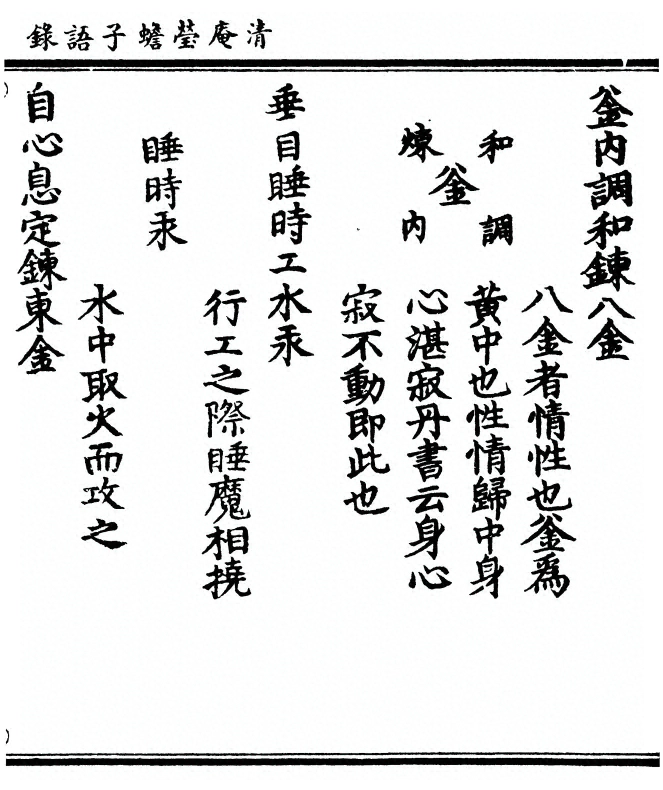 清庵瑩蟾子語錄
釜內調和鍊八金
八金者情性也釜爲
和調
黃中也性情歸中身
釜
煉內
心湛寂丹書云身心
寂不動即此也
垂目睡時工水汞
行工之際睡魔相撓
睡時汞
水中取火而攻之
自心息定鍊東金